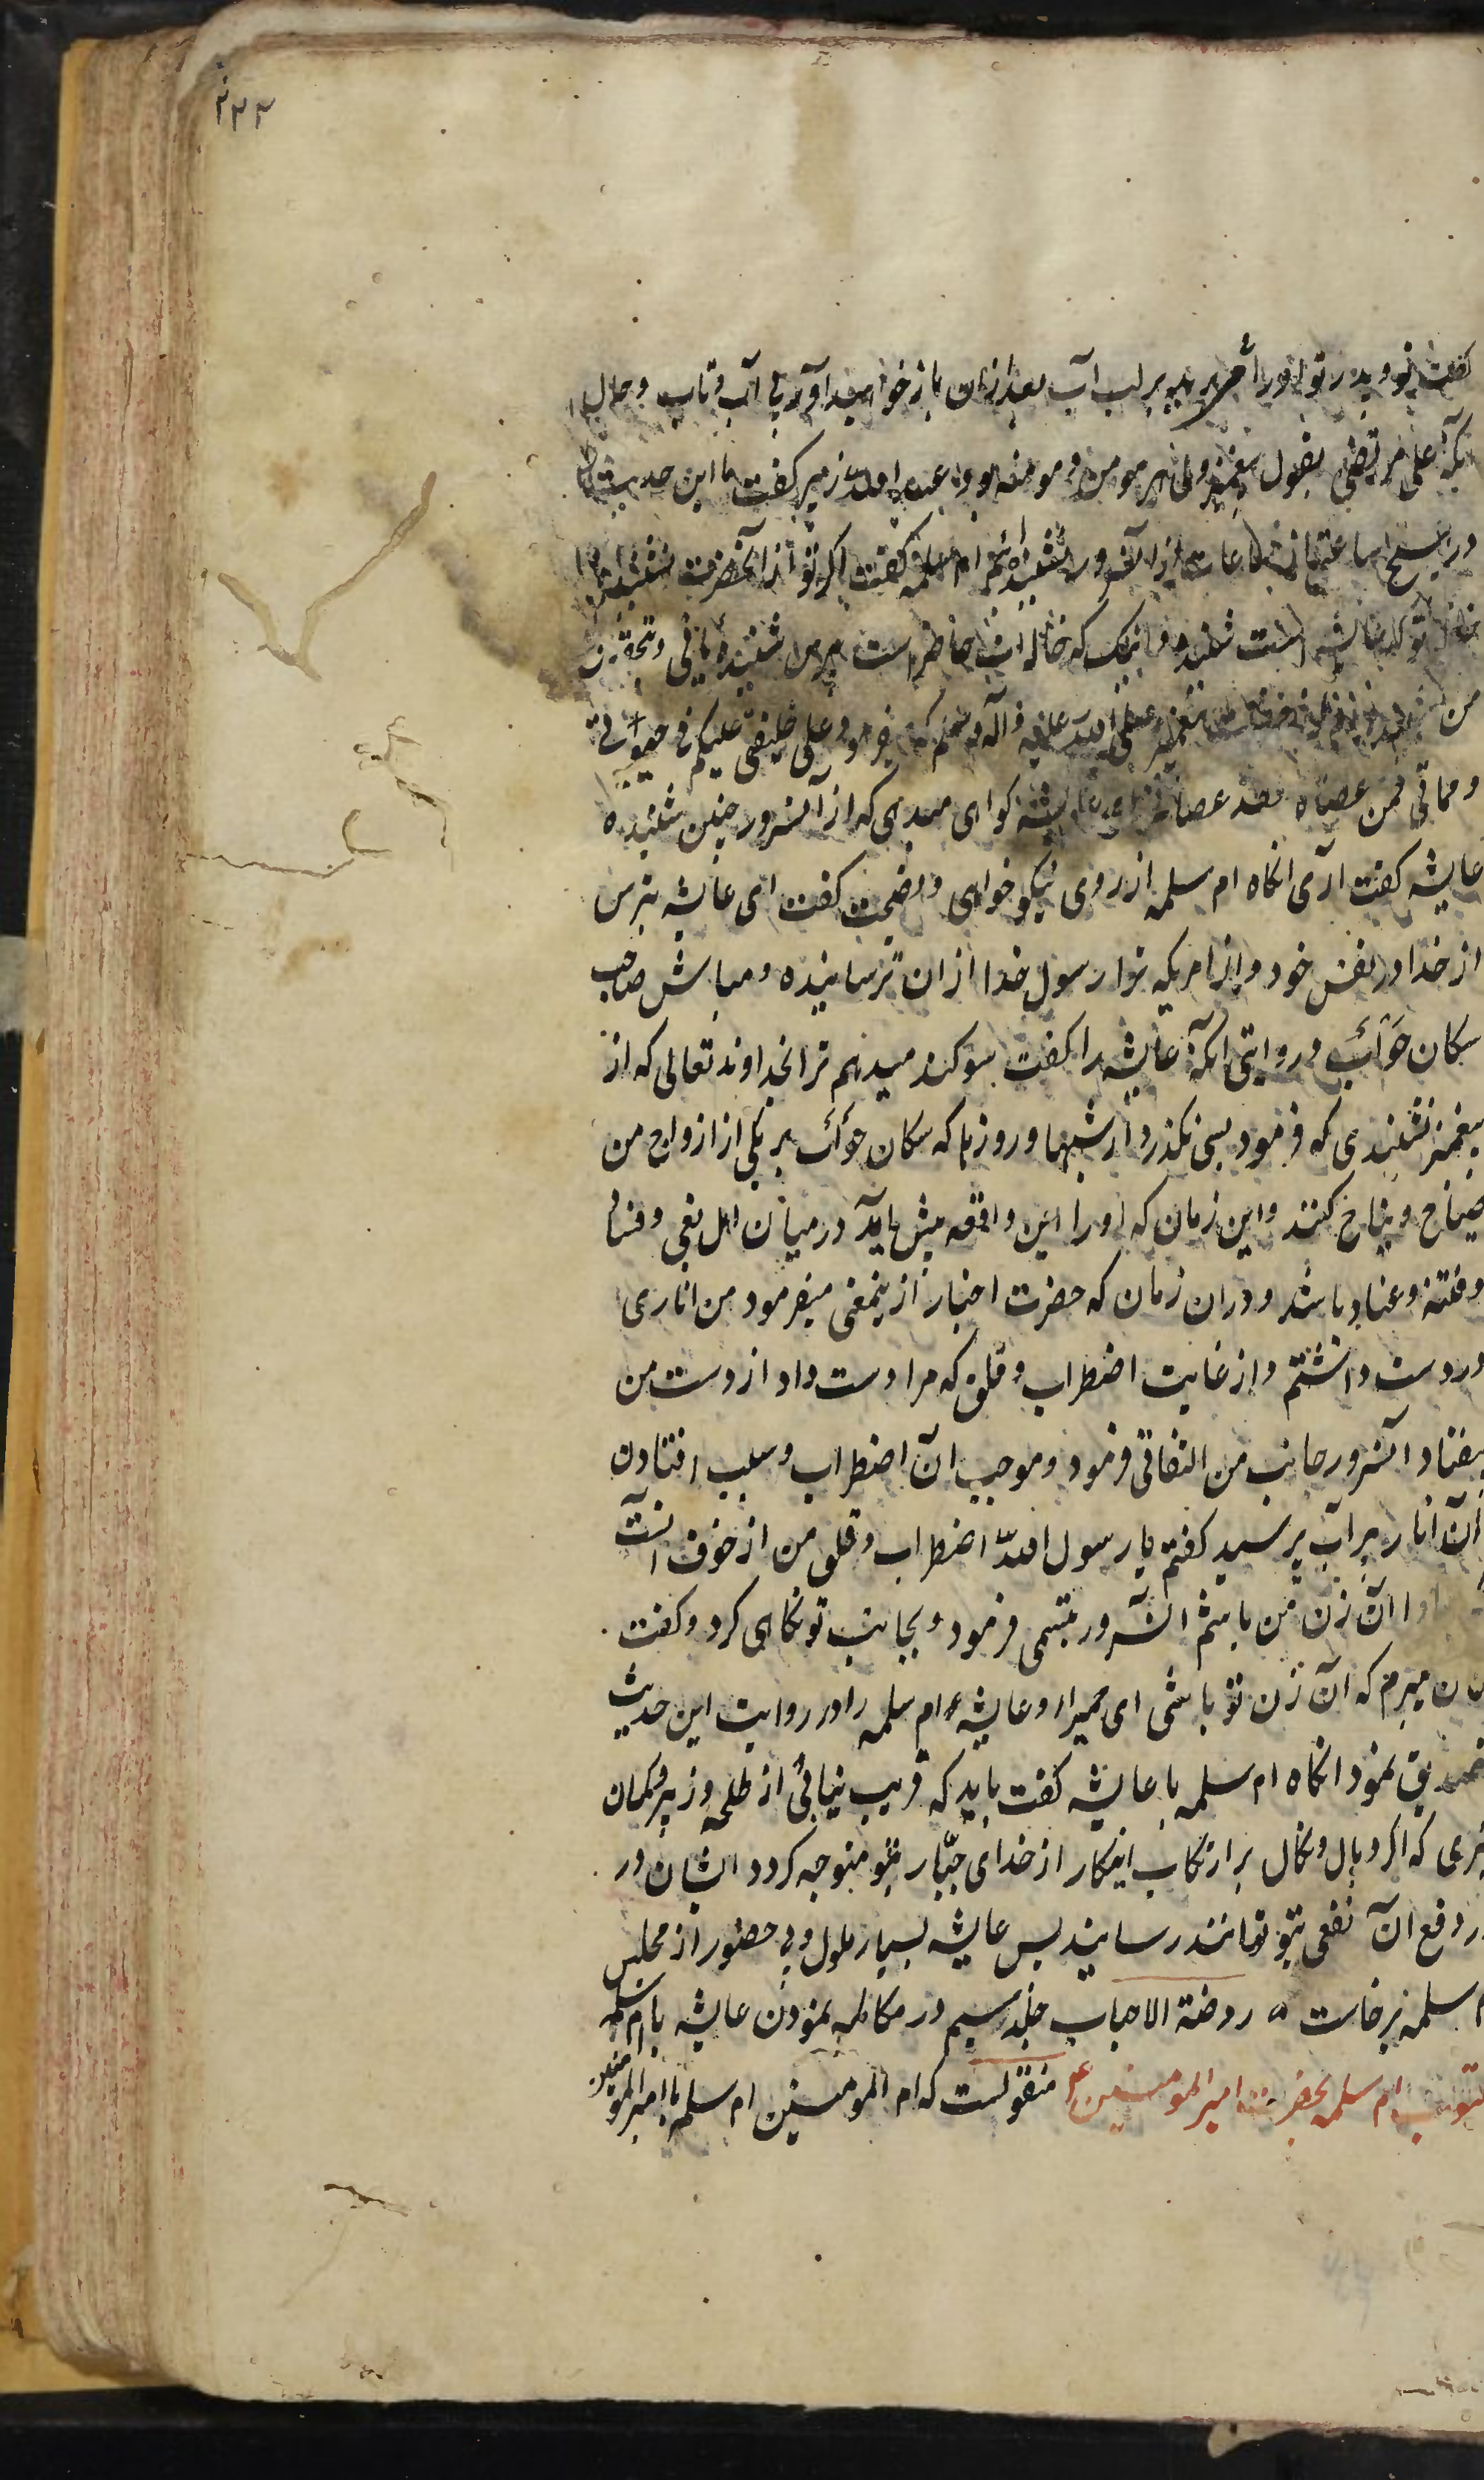 ۲۳۳
گفت تو و پدر تو او را بر لب آب بعد ازان باز خواهید آورد با آب و تاب و حال
آنکه علی مرتضی بقول پیغمبر ولی هر مومن و مومنه بود عبد الله زبیر گفت ما این حدیث
در هیچ ساعتی از ساعات ازان سرور نشنیده‌ایم ام سلمه گفت اگر تو از آنحضرت نشنیده
خاله تو که عایشه است شنیده و اینک که خاله ات حاضر است بپرس شنیده یا نی و بتحقیق
من پیغمبر صلی الله علیه و آله وسلم که میفرمود علی خلیفتی علیکم فی حیوتی
و مماتی فمن عصاه فقد عصانی ای عایشه گواهی میدهی که از آنسرور چنین شنیده
عایشه گفت آری انکاه ام سلمه از روی نیکو خواهی و نصیحت گفت ای عایشه بترس
از خدا در نفس خود و از امریکه ترا رسول خدا ازان ترسانیده و مباش صاحب
سکان حوأب و روایتی آنکه عایشه را گفت سوکند میدهم ترا بخداوند تعالی که از
پیغمبر نشنیدی که فرمود بسی نکذرد از شبها و روزها که سکان حوأب بر یکی از ازواج من
صیاح و نباح کنند و این زمان که او را این واقعه پیش آید در میان اهل بغی و فساد
و فتنه و عناد باشد و دران زمان که حضرت اخبار ازینمعنی میفرمود من اناری
در دست داشتم و از غایت اضطراب و قلق که مرا دست داد از دست من
بیفتاد آنسرور جانب من التفاتی فرمود و موجب آن اضطراب و سبب افتادن
آن انار بر آب پرسید گفتم یا رسول الله اضطراب و قلق من از خوف آنست
مبادا آن زن من باشم آنسرور تبسمی فرمود و بجانب تو نکاهی کرد و گفت
کمان میبرم که آن زن تو باشی ای حمیرا و عایشه ام سلمه را در روایت این حدیث
تصدیق نمود انکاه ام سلمه با عایشه گفت باید که فریب نیابی از طلحه و زبیر و کمان
نبری که اکر وبال و نکال بر ارتکاب اینکار از خدای جبّار بتو متوجه کردد ایشان در
در دفع آن نفعی بتو توانند رسانید پس عایشه بسیار ملول و بی حضور از مجلس
ام سلمه برخاست روضة الاحباب جلد سیم در مکالمه نمودن عایشه با ام سلمه
مکتوب ام سلمه بحضرت امیر المومنین ع منقولست که ام المومنین ام سلمه با امیر المومنین